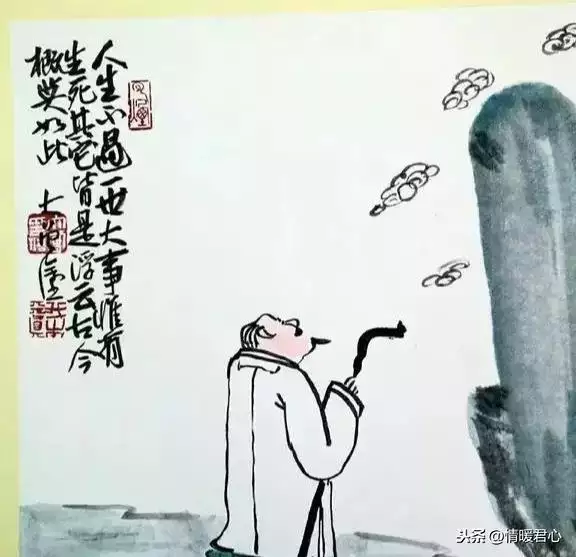 人生不过一世大事惟有
生死其它皆是浮云古今
概莫如此
头条 @情暖君心